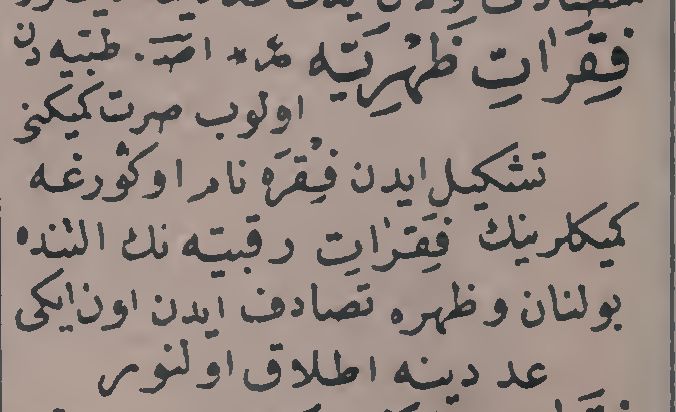 فِقَرَاتِ ظَهْرِيَّه مر* اص. طبیه دن
اولوب صرت كمیكنی
تشكیل ایدن فِقْرَه نام اوكورغه
كمیكلرینك فِقَرَاتِ رقبیه نك التنده
بولنان و ظهره تصادف ایدن اون ایكی
عددینه اطلاق اولنور